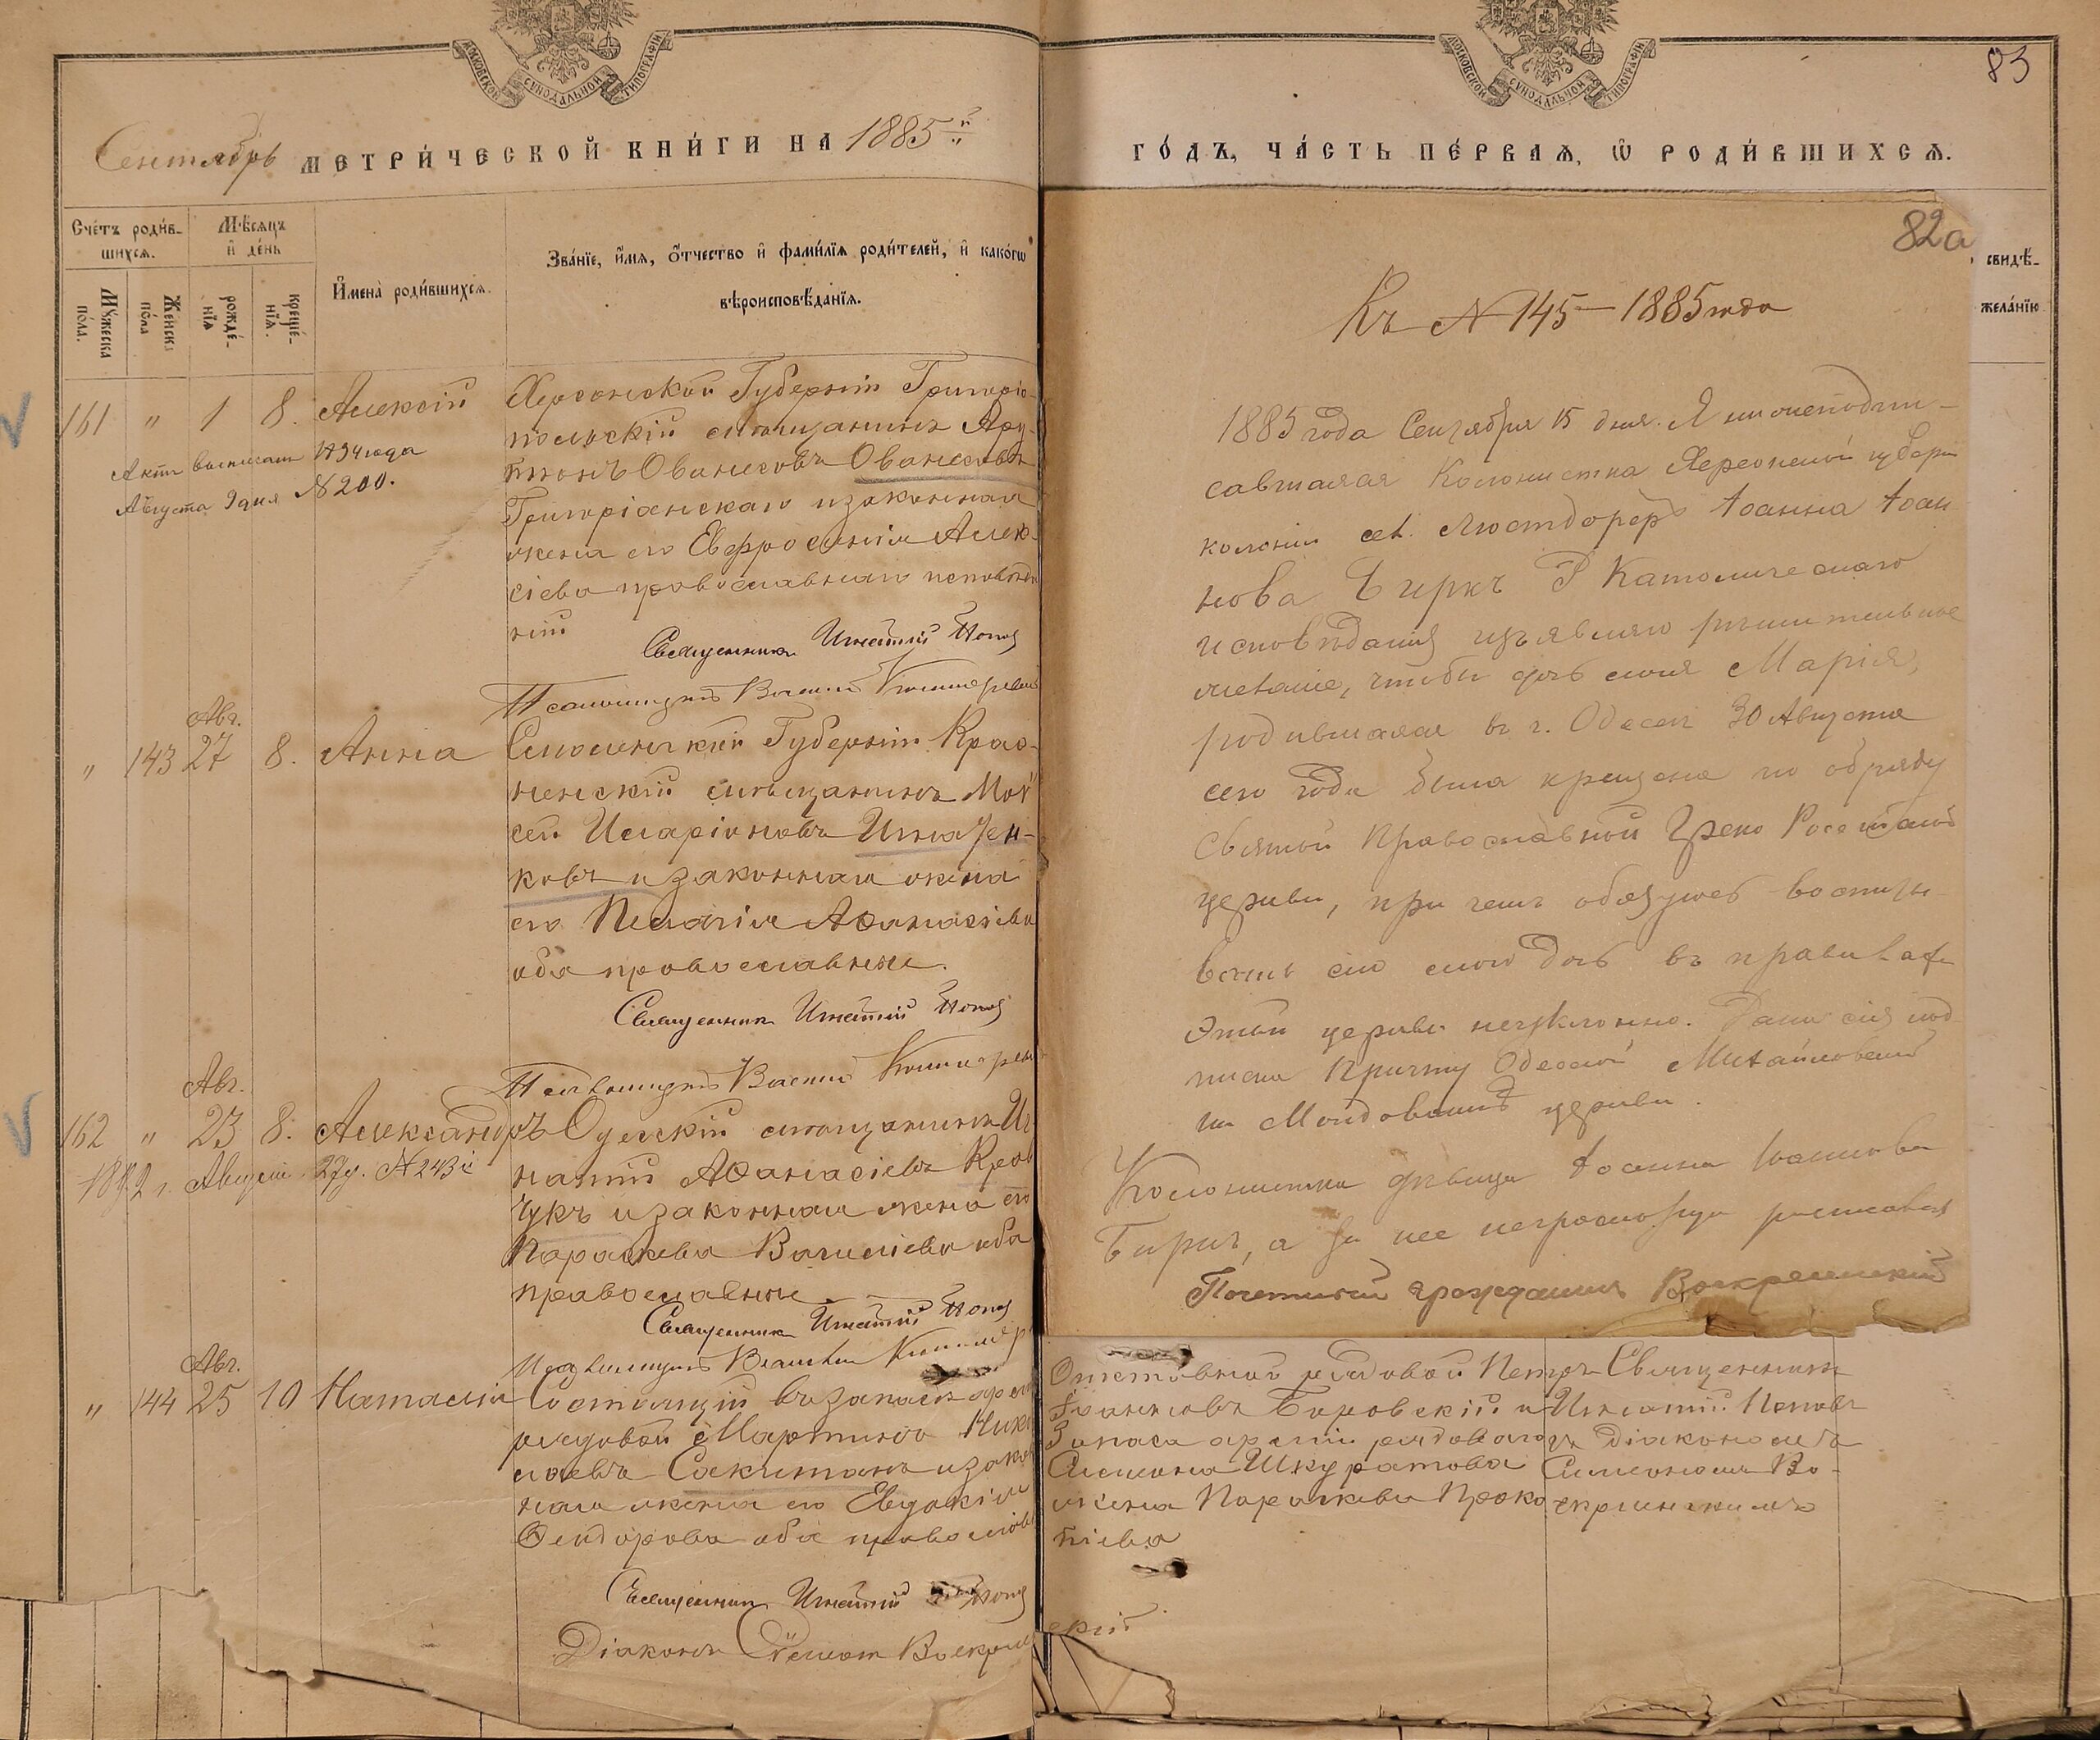 83
Сентябрь МЕТРИ́ЧЕСКОЙ КНИ́ГИ НА 1885й
ГО́ДЪ, ЧА́СТЬ ПЕ́РВАѦ, Ѡ҆ РОДИ́ВШИХСѦ.
Сче́тъ роди́в-
шихсѧ.
Мѣ́сѧцъ
и҆ де́нь
Мꙋ́жеска
по́ла.
Же́нска
по́ла
рожде́-
нїѧ
креще́-
нїѧ.
И҆мена̀ роди́вшихсѧ.
Зва́нїе, и҆́мѧ, ѻ҆́тчество и҆ фами́лїѧ роди́телей, и҆ како́гѡ
вѣроисповѣ́данїѧ.
161 " 1 8. Алексій
Херсонской Губерніи Григоріо-
польскій мѣщанинъ Ару-
тюнъ Ованесовъ Ованесовъ
Григоріанскаго и законная
жена его Евфросинія Алек-
сіева православнаго исповѣда
нія
Актъ выписанъ 1894 года
Августа 9 дня № 200.
Священникъ Игнатій Поповъ
Псаломщикъ Василій
Авг.
" 143 27 8. Анна
Смоленской Губерніи Крас-
ненскій мѣщанинъ Мои
сей Иларіоновъ Игнатен-
ковъ и законная жена
его Пелагія Аѳанасіева
оба православные.
Священникъ Игнатій Поповъ
Псаломщикъ Василій
Авг.
162 " 23 8. Александръ
Одесскій мѣщанинъ Иг
натій Аѳанасіевъ Крав
чукъ и законная жена его
Параскева Василіева оба
православные
1892 г. Августа 27 д. № 243й
Священникъ Игнатій Поповъ
Псаломщикъ Василій
Авг.
" 144 25 10 Наталія
Состоящій въ запасѣ арміи
рядовой Мартинъ Нико
лаевъ и закон
ная жена его Евдокія
Ѳеодорова оба православ
Священникъ Игнатій Поповъ
Діаконъ Симеонъ Воскре
82а
свидѣ́-
жела́нїю
Къ № 145 – 1885 года
1885 года Сентября 15 дня. Я нижеподпи-
савшаяся Колонистка Херсонской губерн
колоніи Люстдорфъ Іоанна Іоан
нова Биркъ Р Католическаго
исповѣданія изъявляю рѣшительное
желаніе, чтобы дочь моя Марія,
родившаяся въ г. Одессѣ 30 Августа
сего года была крещена по обряду
Святой Православной Греко Россійской
церкви, при чемъ обязуюсь воспиты-
вать сію мою дочь въ правилахъ
этой церкви неуклонно. Дана сія под-
писка Причту Одесской Михайловской
на Молдованкѣ церкви.
Колонистка дѣвица Іоанна Іоаннова
Биркъ, а за нее неграмотную расписался
Почетный гражданинъ Воскресенскій
Отставной рядовой Петръ
Іоанновъ Боровскій и
Запаса арміи рядоваго
Симеона Шкуратова
жена Параскева Проко
піева
Священникъ
Игнатій Поповъ
съ Діакономъ
Симеономъ Во-
скресенскимъ